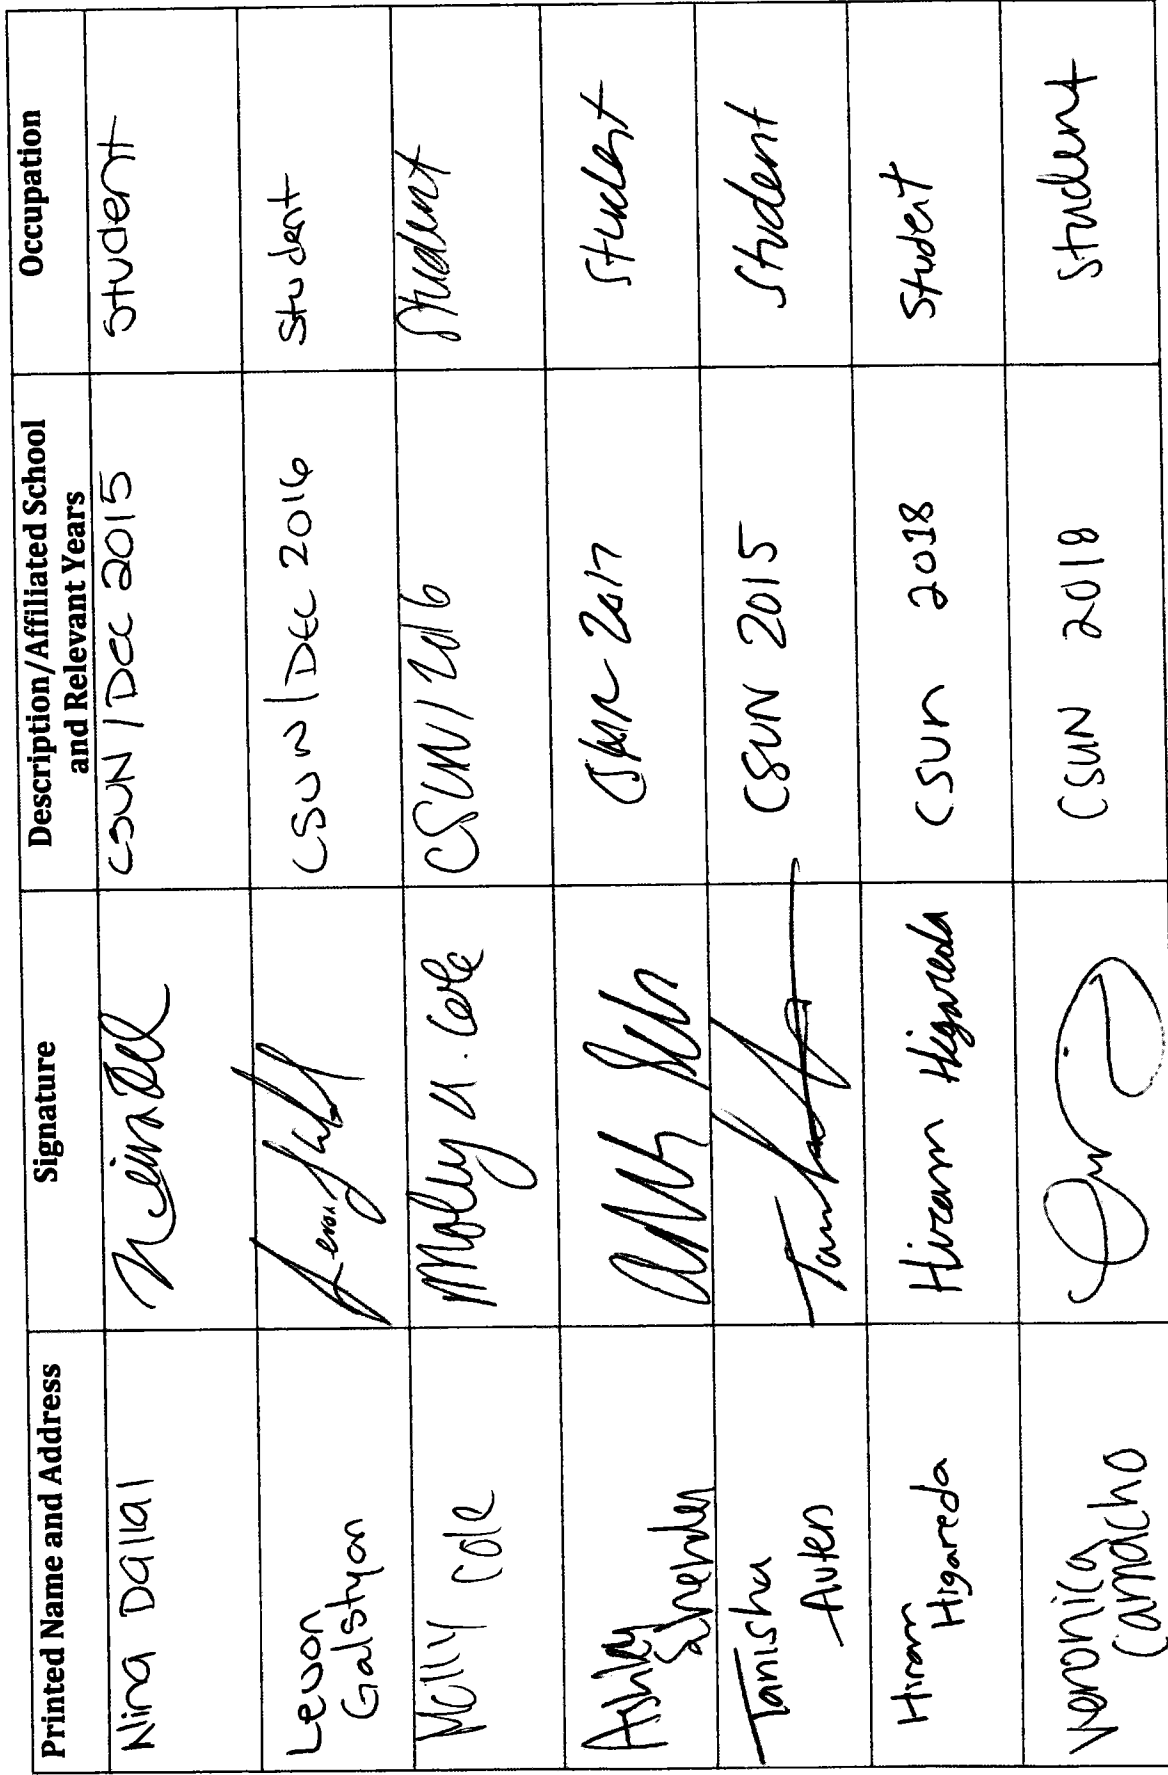 Printed Name and Address Signature Description/Affiliated School and Relevant Years Occupation
Nina Dallal CSUN / Dec 2015 Student
Levon Galstyan CSUN / DEC 2016 Student
Molly Cole Molly A. Cole CSUN / 2016 Student
Ashley CSUN 2017 Student
Tanisha Auten CSUN 2015 Student
Hiram Higareda Hiram Higareda CSUN 2018 Student
Veronica Camacho CSUN 2018 Student